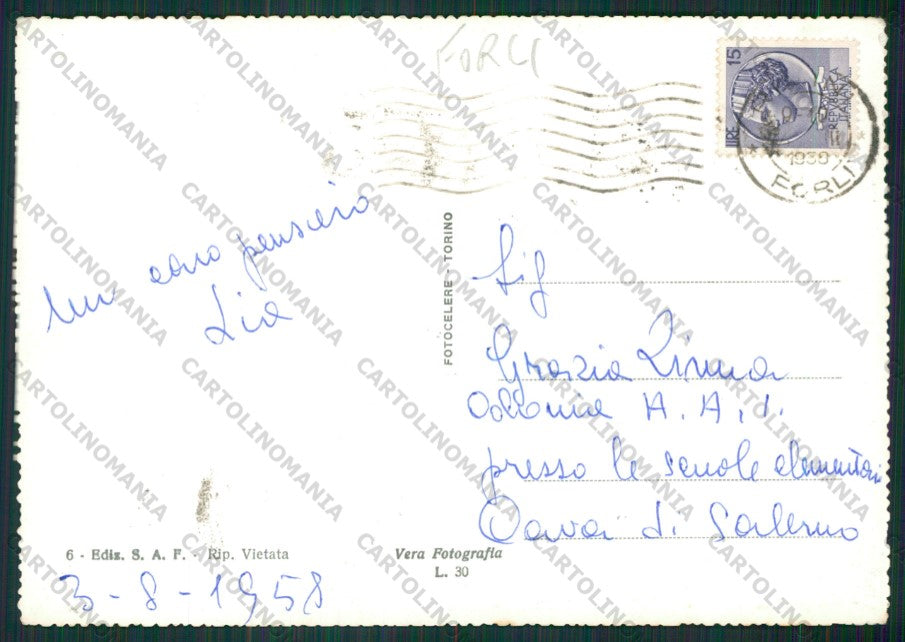 FORLÌ
LIRE 15
REPUBBLICA
ITALIANA
FORLI
Un caro pensiero
Lia
FOTOCELERE - TORINO
Sig
Grazia
Colonia A. A. I.
presso le scuole elementari
Cava di Salerno
6 - Ediz. S. A. F. - Rip. Vietata
Vera Fotografia
L. 30
3-8-1958
CARTOLINOMANIA